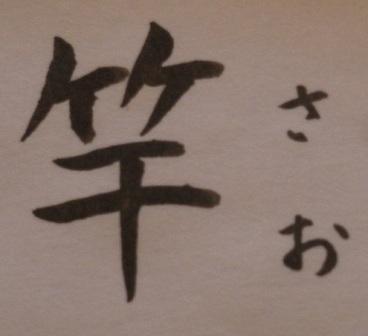 竿
さお